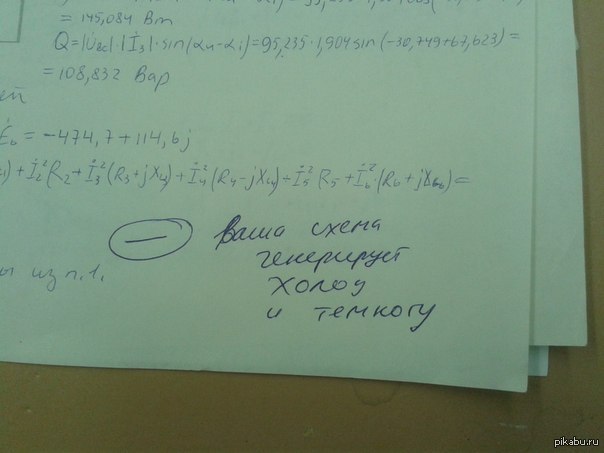 = 145,084 Вт
Q = |U̇вс|·|İ₃|·sin(αu-αi)=95,235·1,904 sin(-30,749+67,623)=
= 108,832 Вар
ей
Ėь = -474,7+114,6j
)+İ₂²R₂+İ₃²(R₃+jX₃)+İ₄²(R₄-jX₄)+İ₅²R₅+İ₆²·(R₆+jX₆)=
ы из п.1.
— Ваша схема
генерирует
холод
и темноту
pikabu.ru